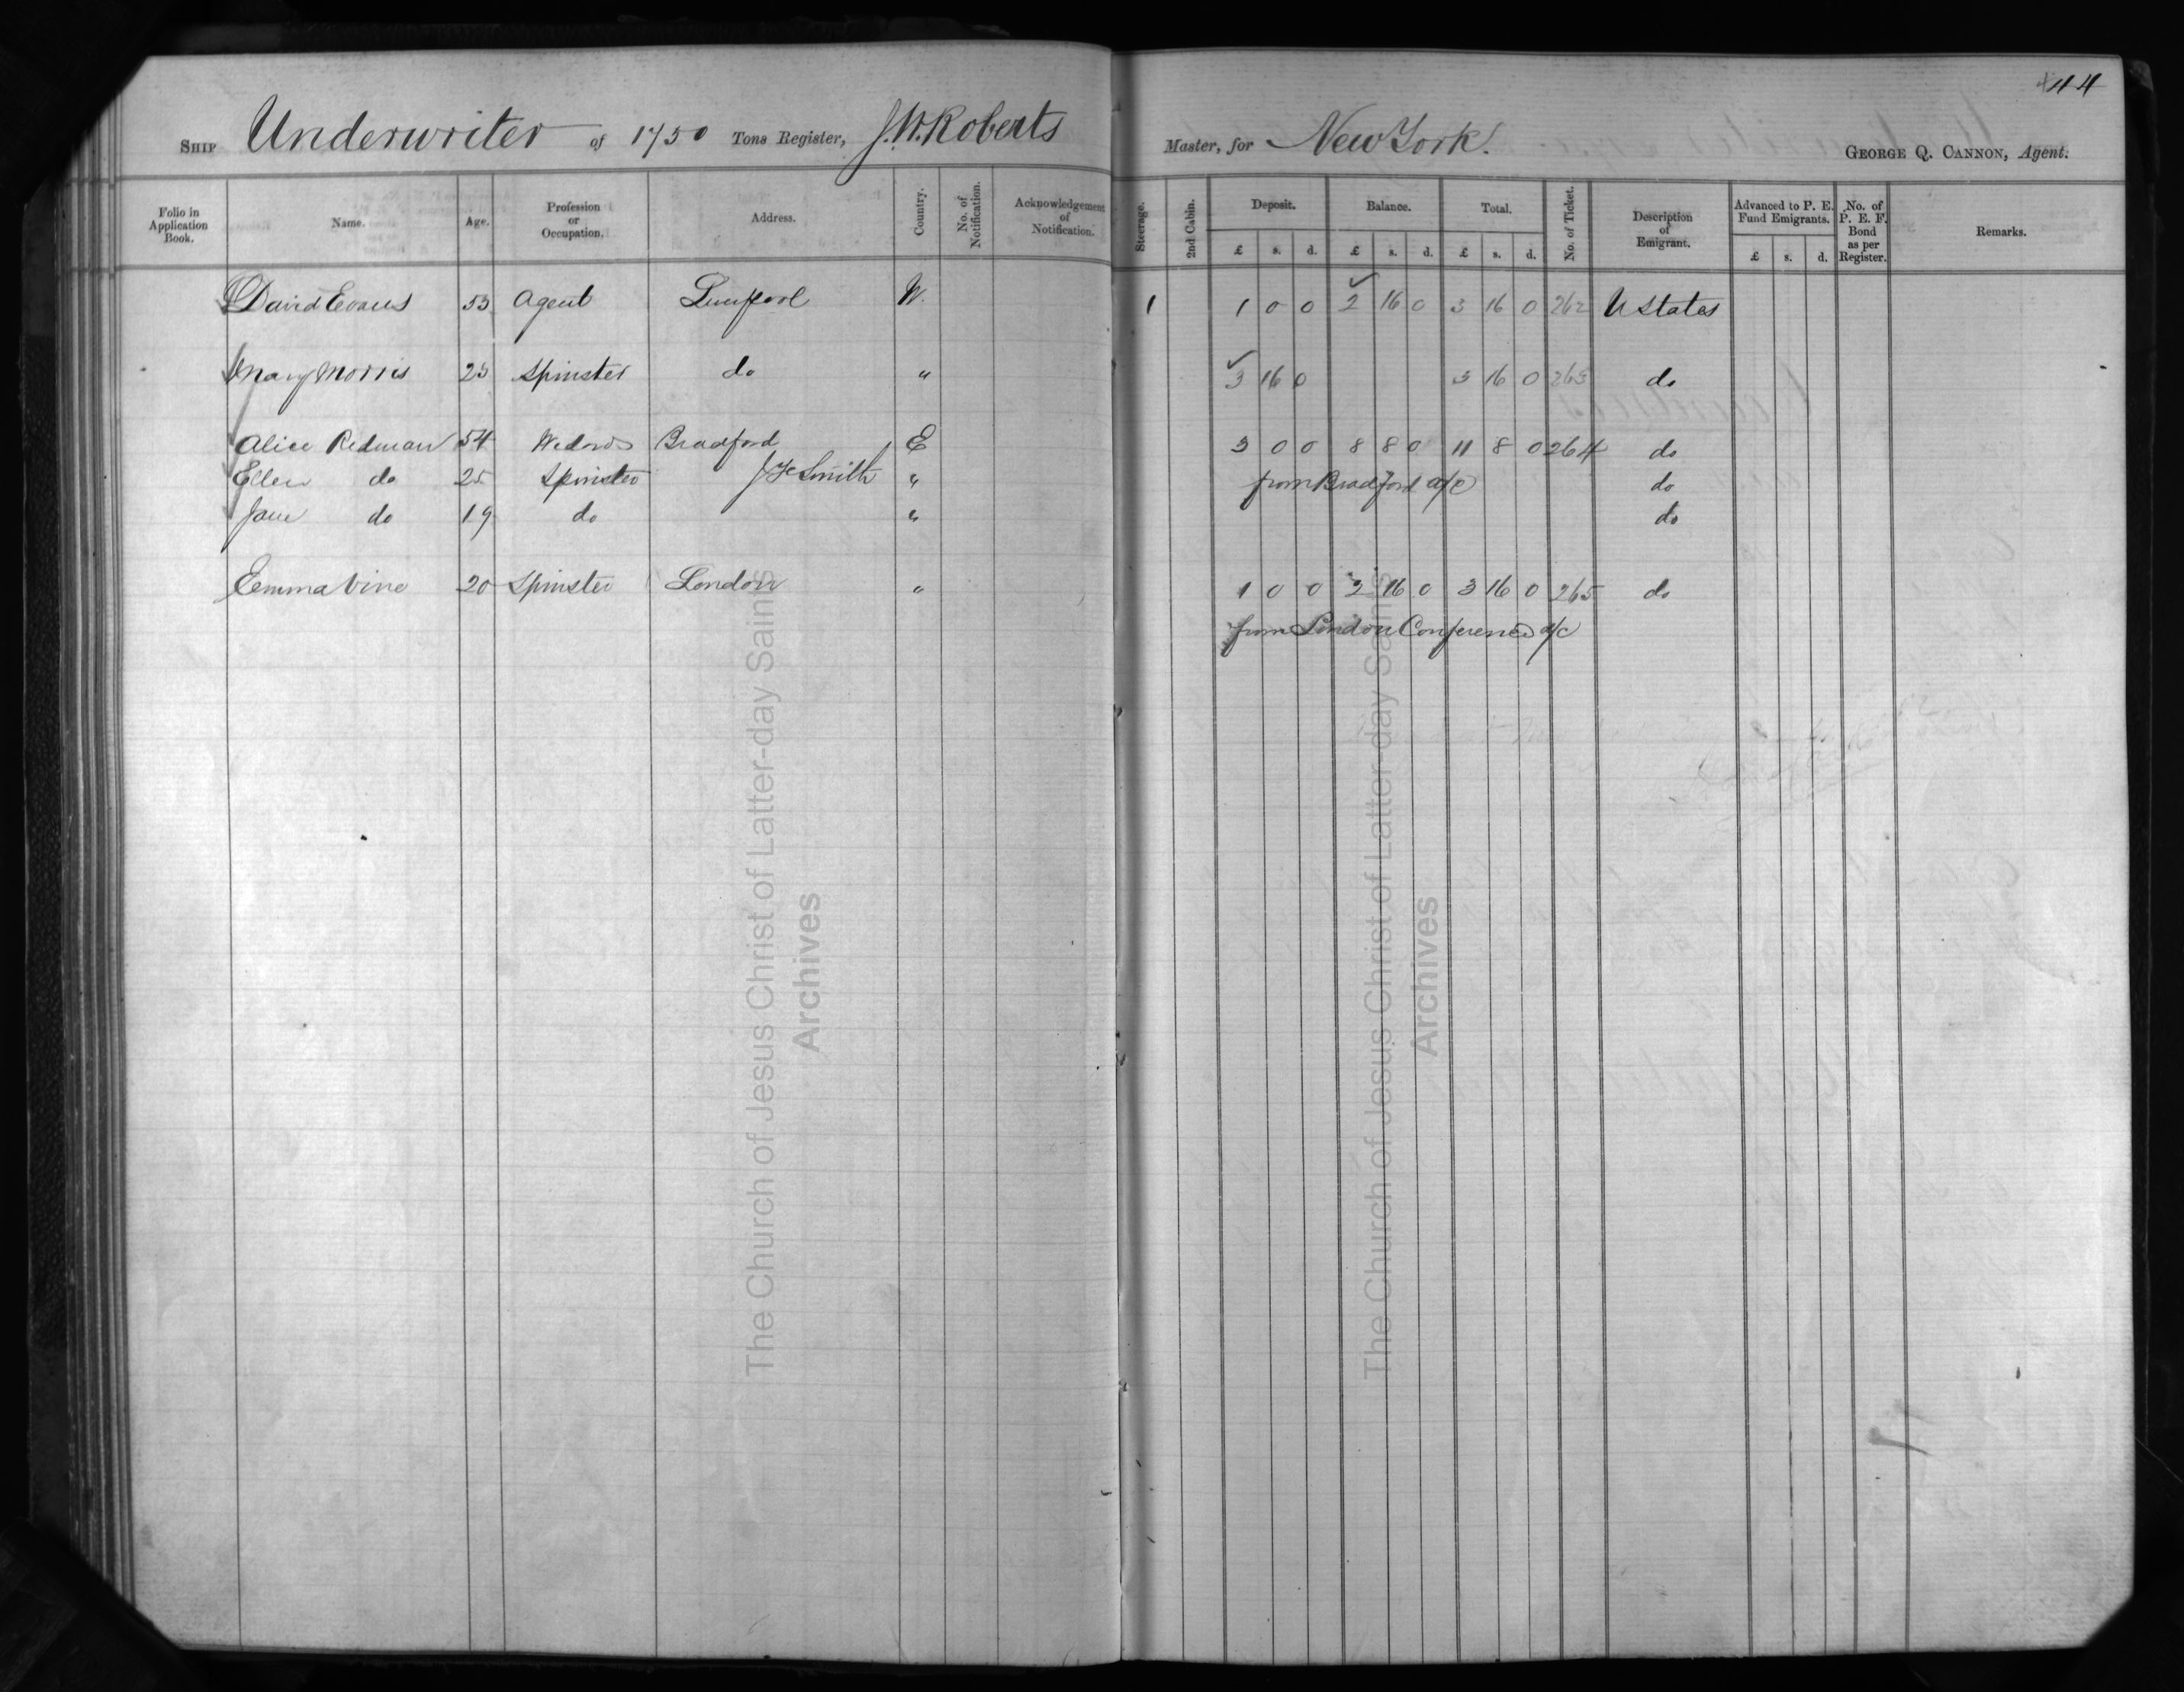 44
SHIP Underwriter of 1750 Tons Register, J.W. Roberts Master, for New York. GEORGE Q. CANNON, Agent.
Folio in Application Book. Name. Age. Profession or Occupation. Address. Country. No. of Notification. Acknowledgement of Notification. Steerage. 2nd Cabin. Deposit. Balance. Total. No. of Ticket. Description of Emigrant. Advanced to P. E. Fund Emigrants. No. of P. E. F. Bond as per Register. Remarks.
£ s. d. £ s. d. £ s. d. £ s. d.
David Evans 53 Agent Liverpool W. 1 1 0 0 2 16 0 3 16 0 262 U States
Mary Morris 23 Spinster do " 3 16 0 3 16 0 263 do
Alice Redman 54 Widow Bradford E 3 0 0 8 8 0 11 8 0 264 do
Ellen do 25 Spinster Smith " from Bradford a/c do
Jane do 19 do " do
Emma Vine 20 Spinster London " 1 0 0 2 16 0 3 16 0 265 do
from London Conference a/c
The Church of Jesus Christ of Latter-day Saints
Archives
The Church of Jesus Christ of Latter-day Saints
Archives